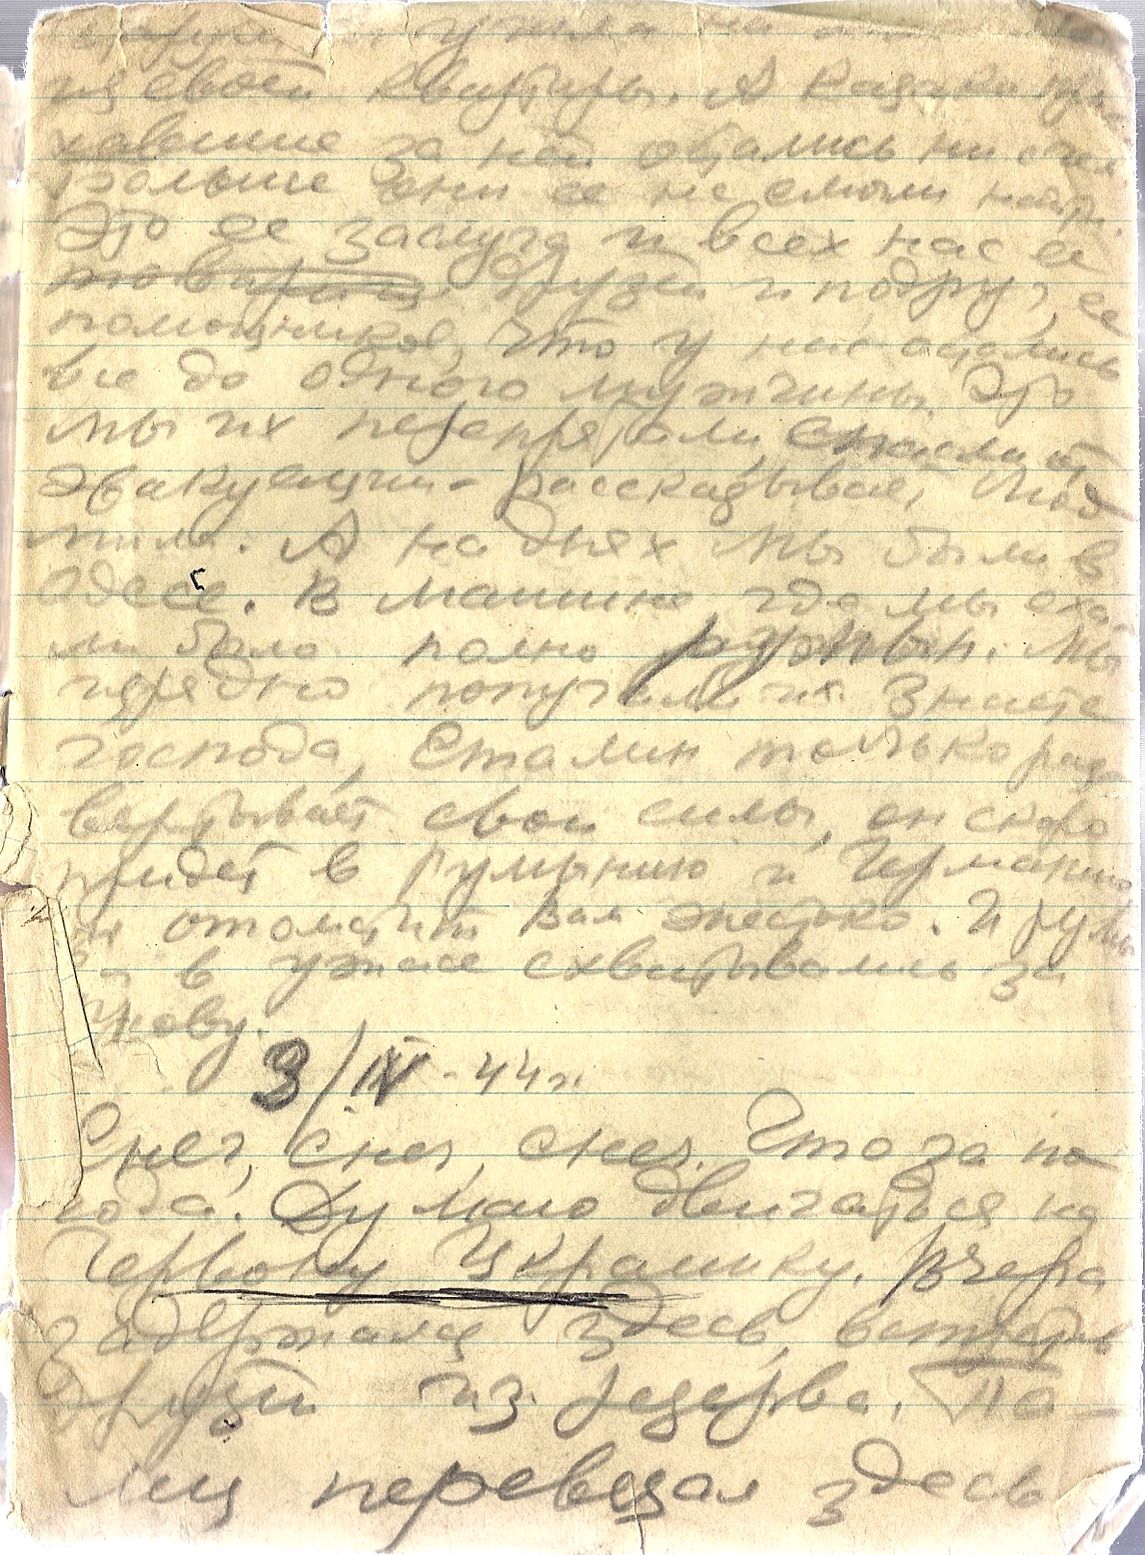 из своей квартиры. А казаки прие
хавшие за ней остались ни с чем
больше они ее не смогли найти.
Это ее заслуга и всех нас ее
друзей и подруг, ее
помощников, что у нас остались
все до одного мужчины. Это
мы их перепрятали, спасли от
эвакуации - рассказывал,
А на днях мы были в
Одесе. В машине, где мы еха
ли было полно румын. Мы
изрядно попугали их Знаете
господа, Сталин только раз
вертывает свои силы, он скоро
придет в Румынию и Германию
и отомстит вам жестоко. И румы
ны в ужасе схватывались за
голову.
3/IV-44 г.
Снег, снег, снег. Что за по
года. Думаю двигаться на
Червону Украинку. Вчера
задержался здесь, встретив
друзей из резерва. Па-
лец перевязал здесь